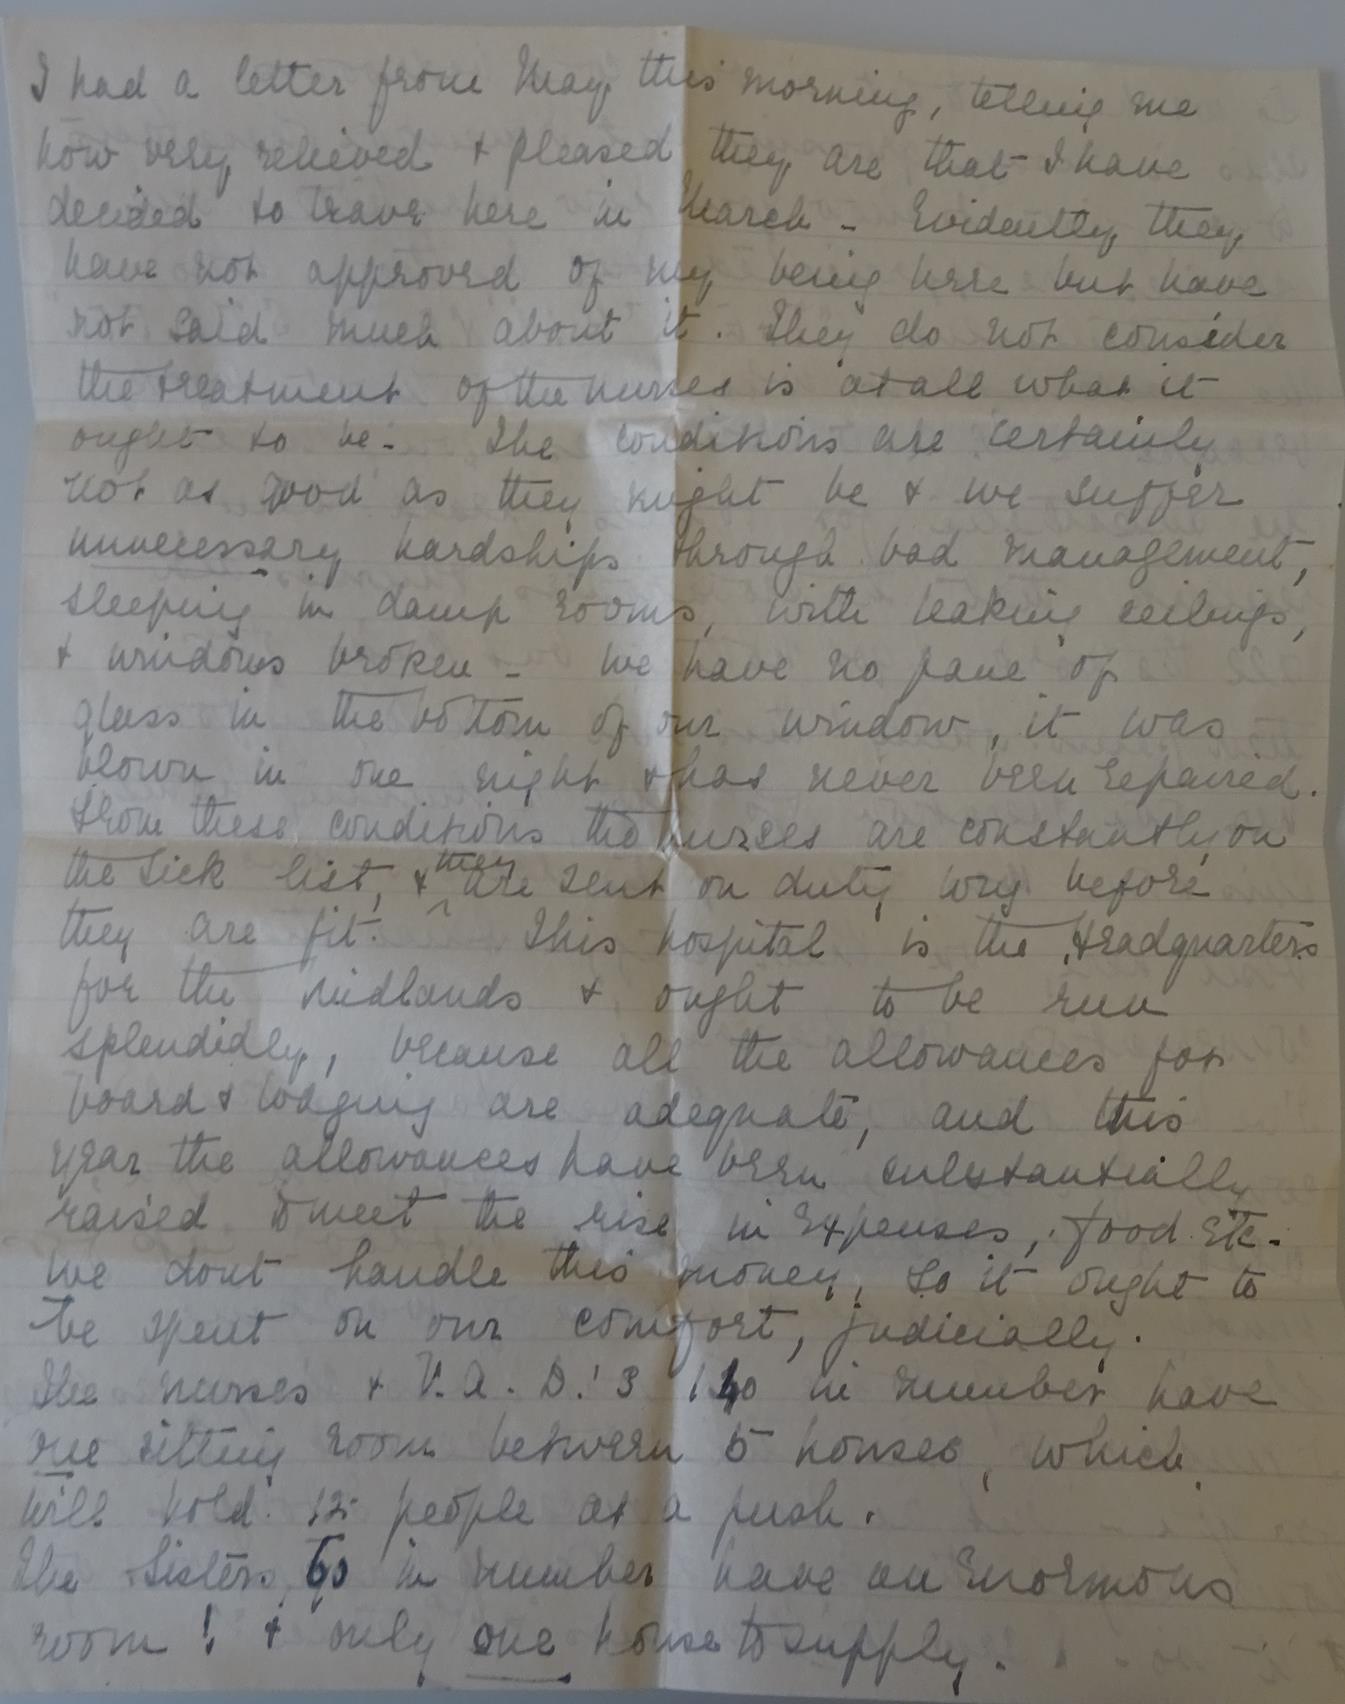 I had a letter from May this morning, telling me
how very relieved & pleased they are that I have
decided to leave here in March - Evidently they
have not approved of my being here but have
not said much about it. They do not consider
the treatment of the nurses is at all what it
ought to be - The conditions are certainly
not as good as they might be & we suffer
unnecessary hardships through bad management,
sleeping in damp rooms, with leaking ceilings,
& windows broken - we have no pane of
glass in the bottom of our window, it was
blown in one night & has never been repaired.
From these conditions the nurses are constantly on
the sick list, & they are sent on duty long before
they are fit. This hospital is the Headquarters
for the midlands & ought to be run
splendidly, because all the allowances for
board & lodging are adequate, and this
year the allowances have been substantially
raised to meet the rise in expenses, food etc -
we dont handle this money, so it ought to
be spent on our comfort, judicially.
The nurses & V.A.D.'s 140 in number have
one sitting room between 5 houses, which
will hold 12 people at a push.
The Sisters 60 in number have an Enormous
room! & only one house to supply.